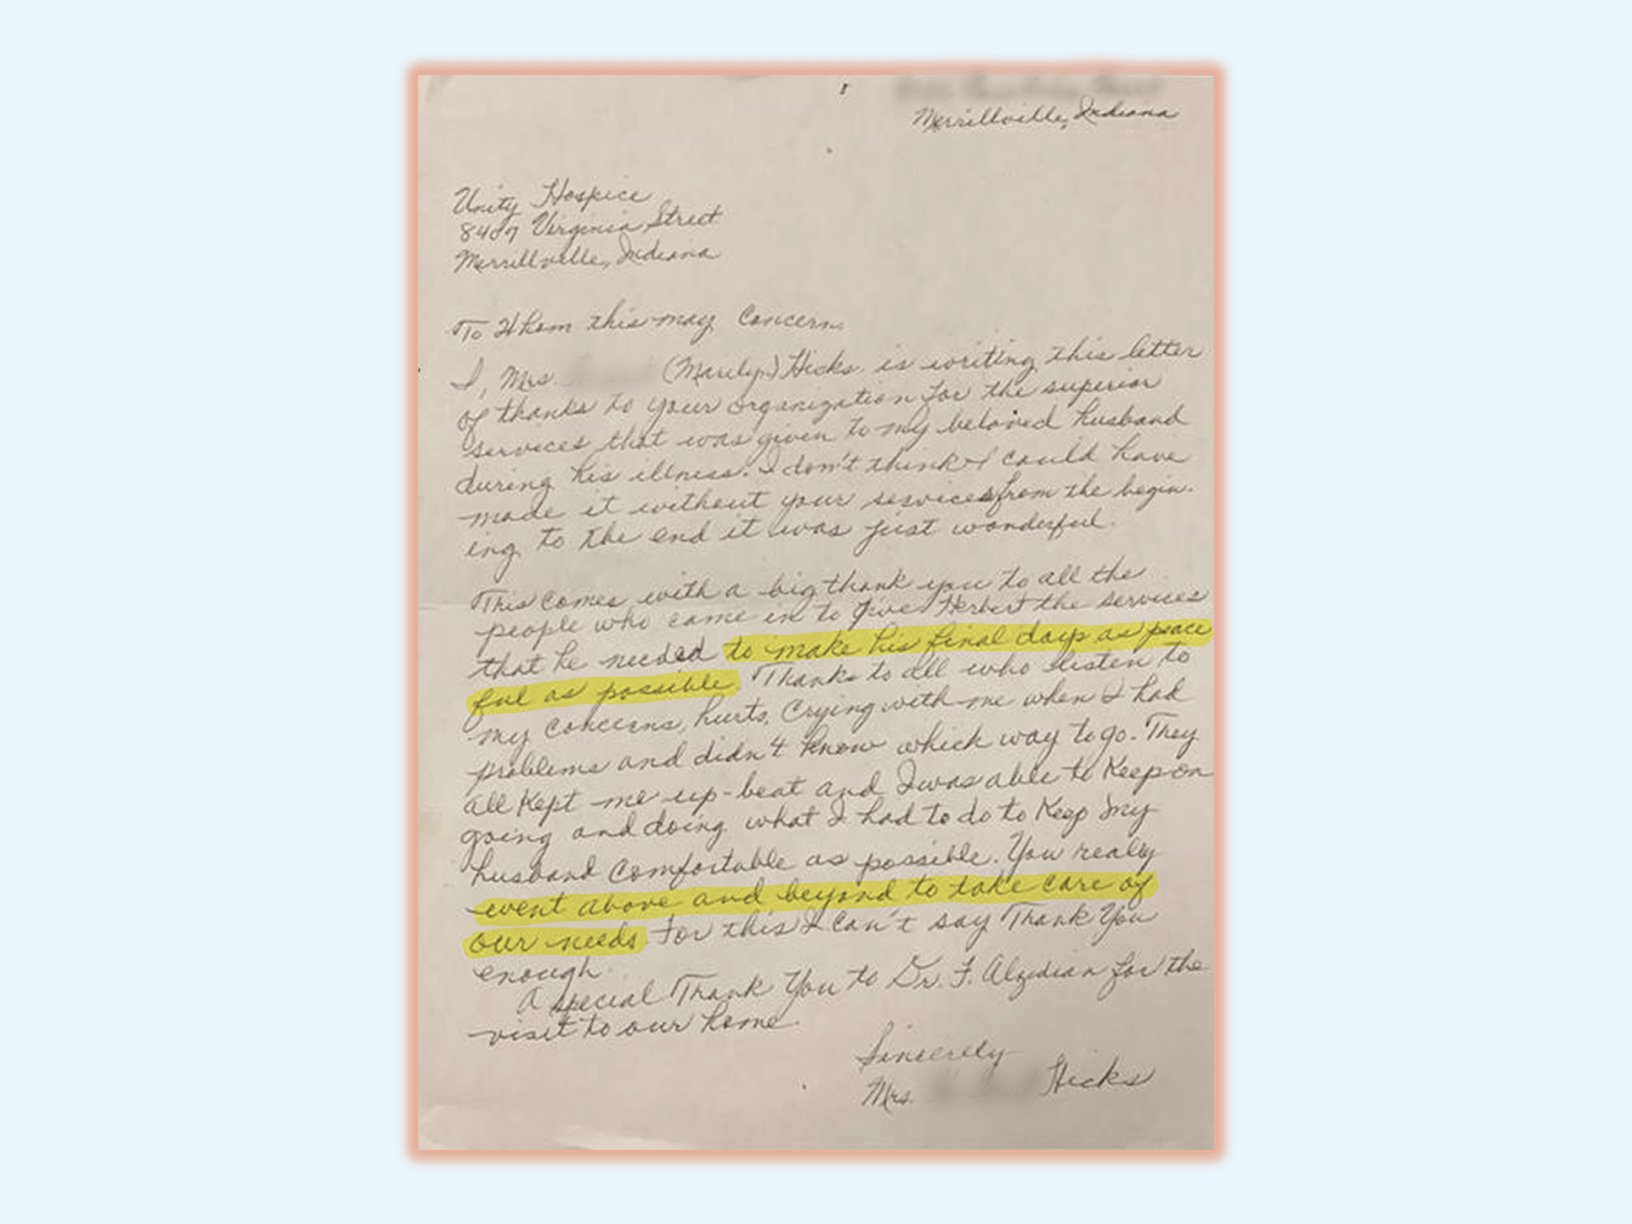 Merrillville, Indiana
Unity Hospice
8407 Virginia Street
Merrillville, Indiana
To Whom this may Concern
I, Mrs. (Marilyn) Hicks is writing this letter
of thanks to your organization for the superior
services that was given to my beloved husband
during his illness. I don't think I could have
made it without your services from the begin-
ing to the end it was just wonderful.
This comes with a big thank you to all the
people who came in to give Herbert the services
that he needed to make his final days as peace
ful as possible. Thanks to all who listen to
my concerns, hurts, Crying with me when I had
problems and didn't know which way to go. They
all Kept me up-beat and I was able to Keep on
going and doing what I had to do to Keep my
husband Comfortable as possible. You really
went above and beyond to take care of
our needs. For this I can't say Thank You
enough.
A special Thank You to Dr. F. for the
visit to our home.
Sincerely
Mrs. Hicks